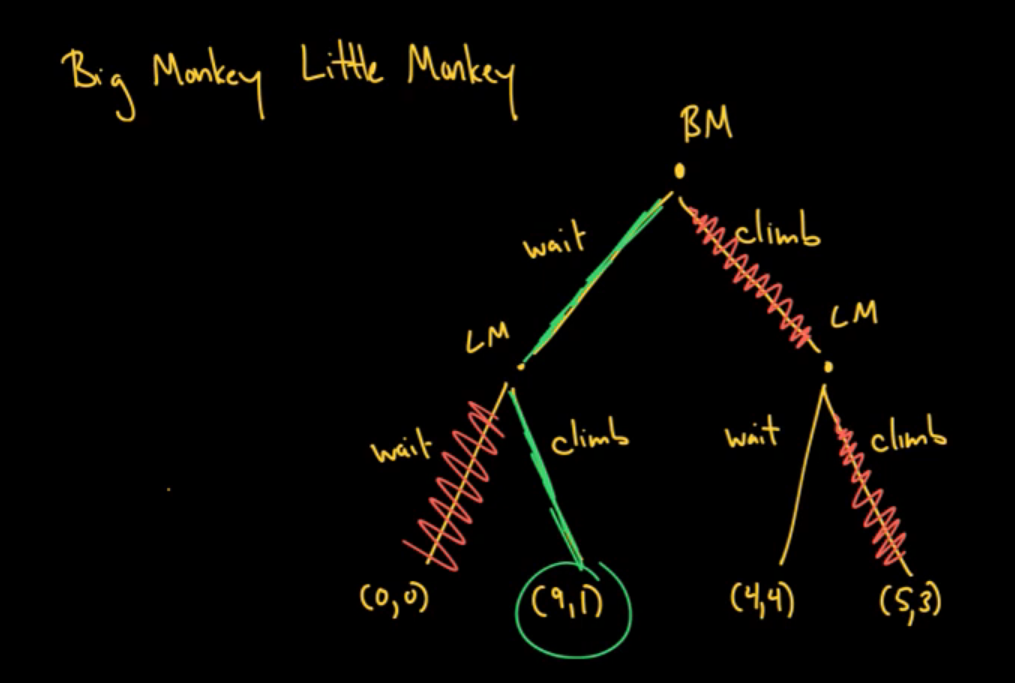 Big Monkey Little Monkey
BM
wait
climb
LM
LM
wait
climb
wait
climb
(0,0)
(9,1)
(4,4)
(5,3)